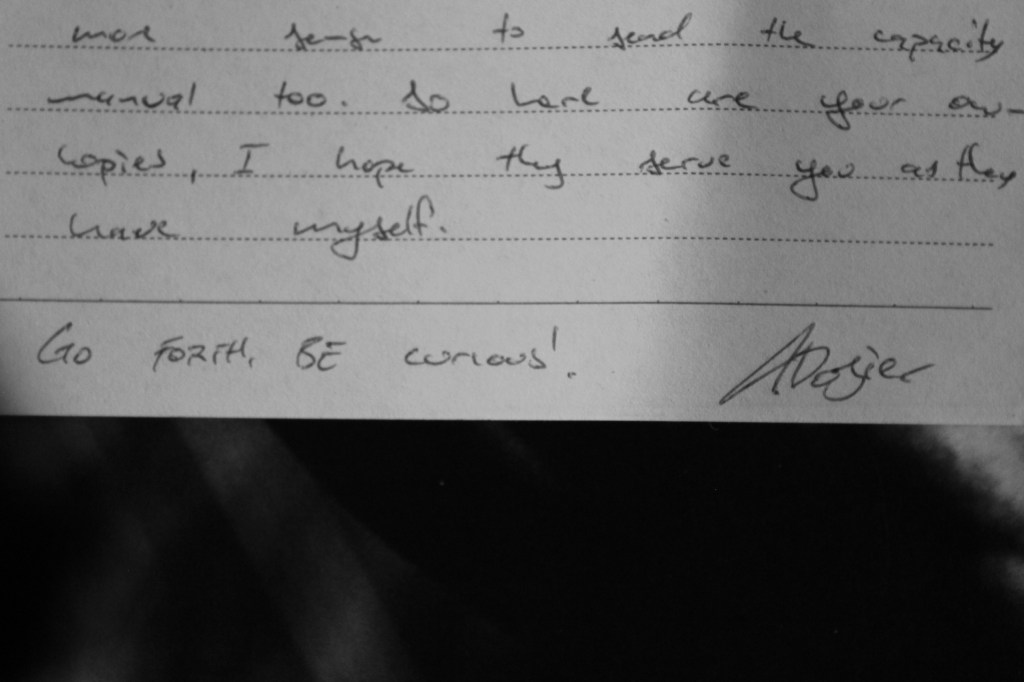 more sense to send the capacity
manual too. So here are your own
copies, I hope they serve you as they
have myself.
GO FORTH, BE curious!